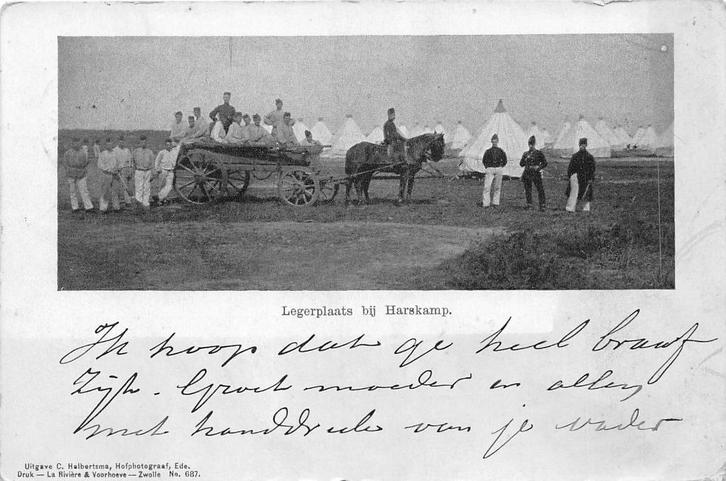 Legerplaats bij Harskamp.
Ik hoop dat ge heel braaf
Zijt. Groet moeder en allen
met handdruk van je vader
Uitgave C. Halbertsma, Hofphotograaf, Ede.
Druk — La Rivière & Voorhoeve — Zwolle No. 687.